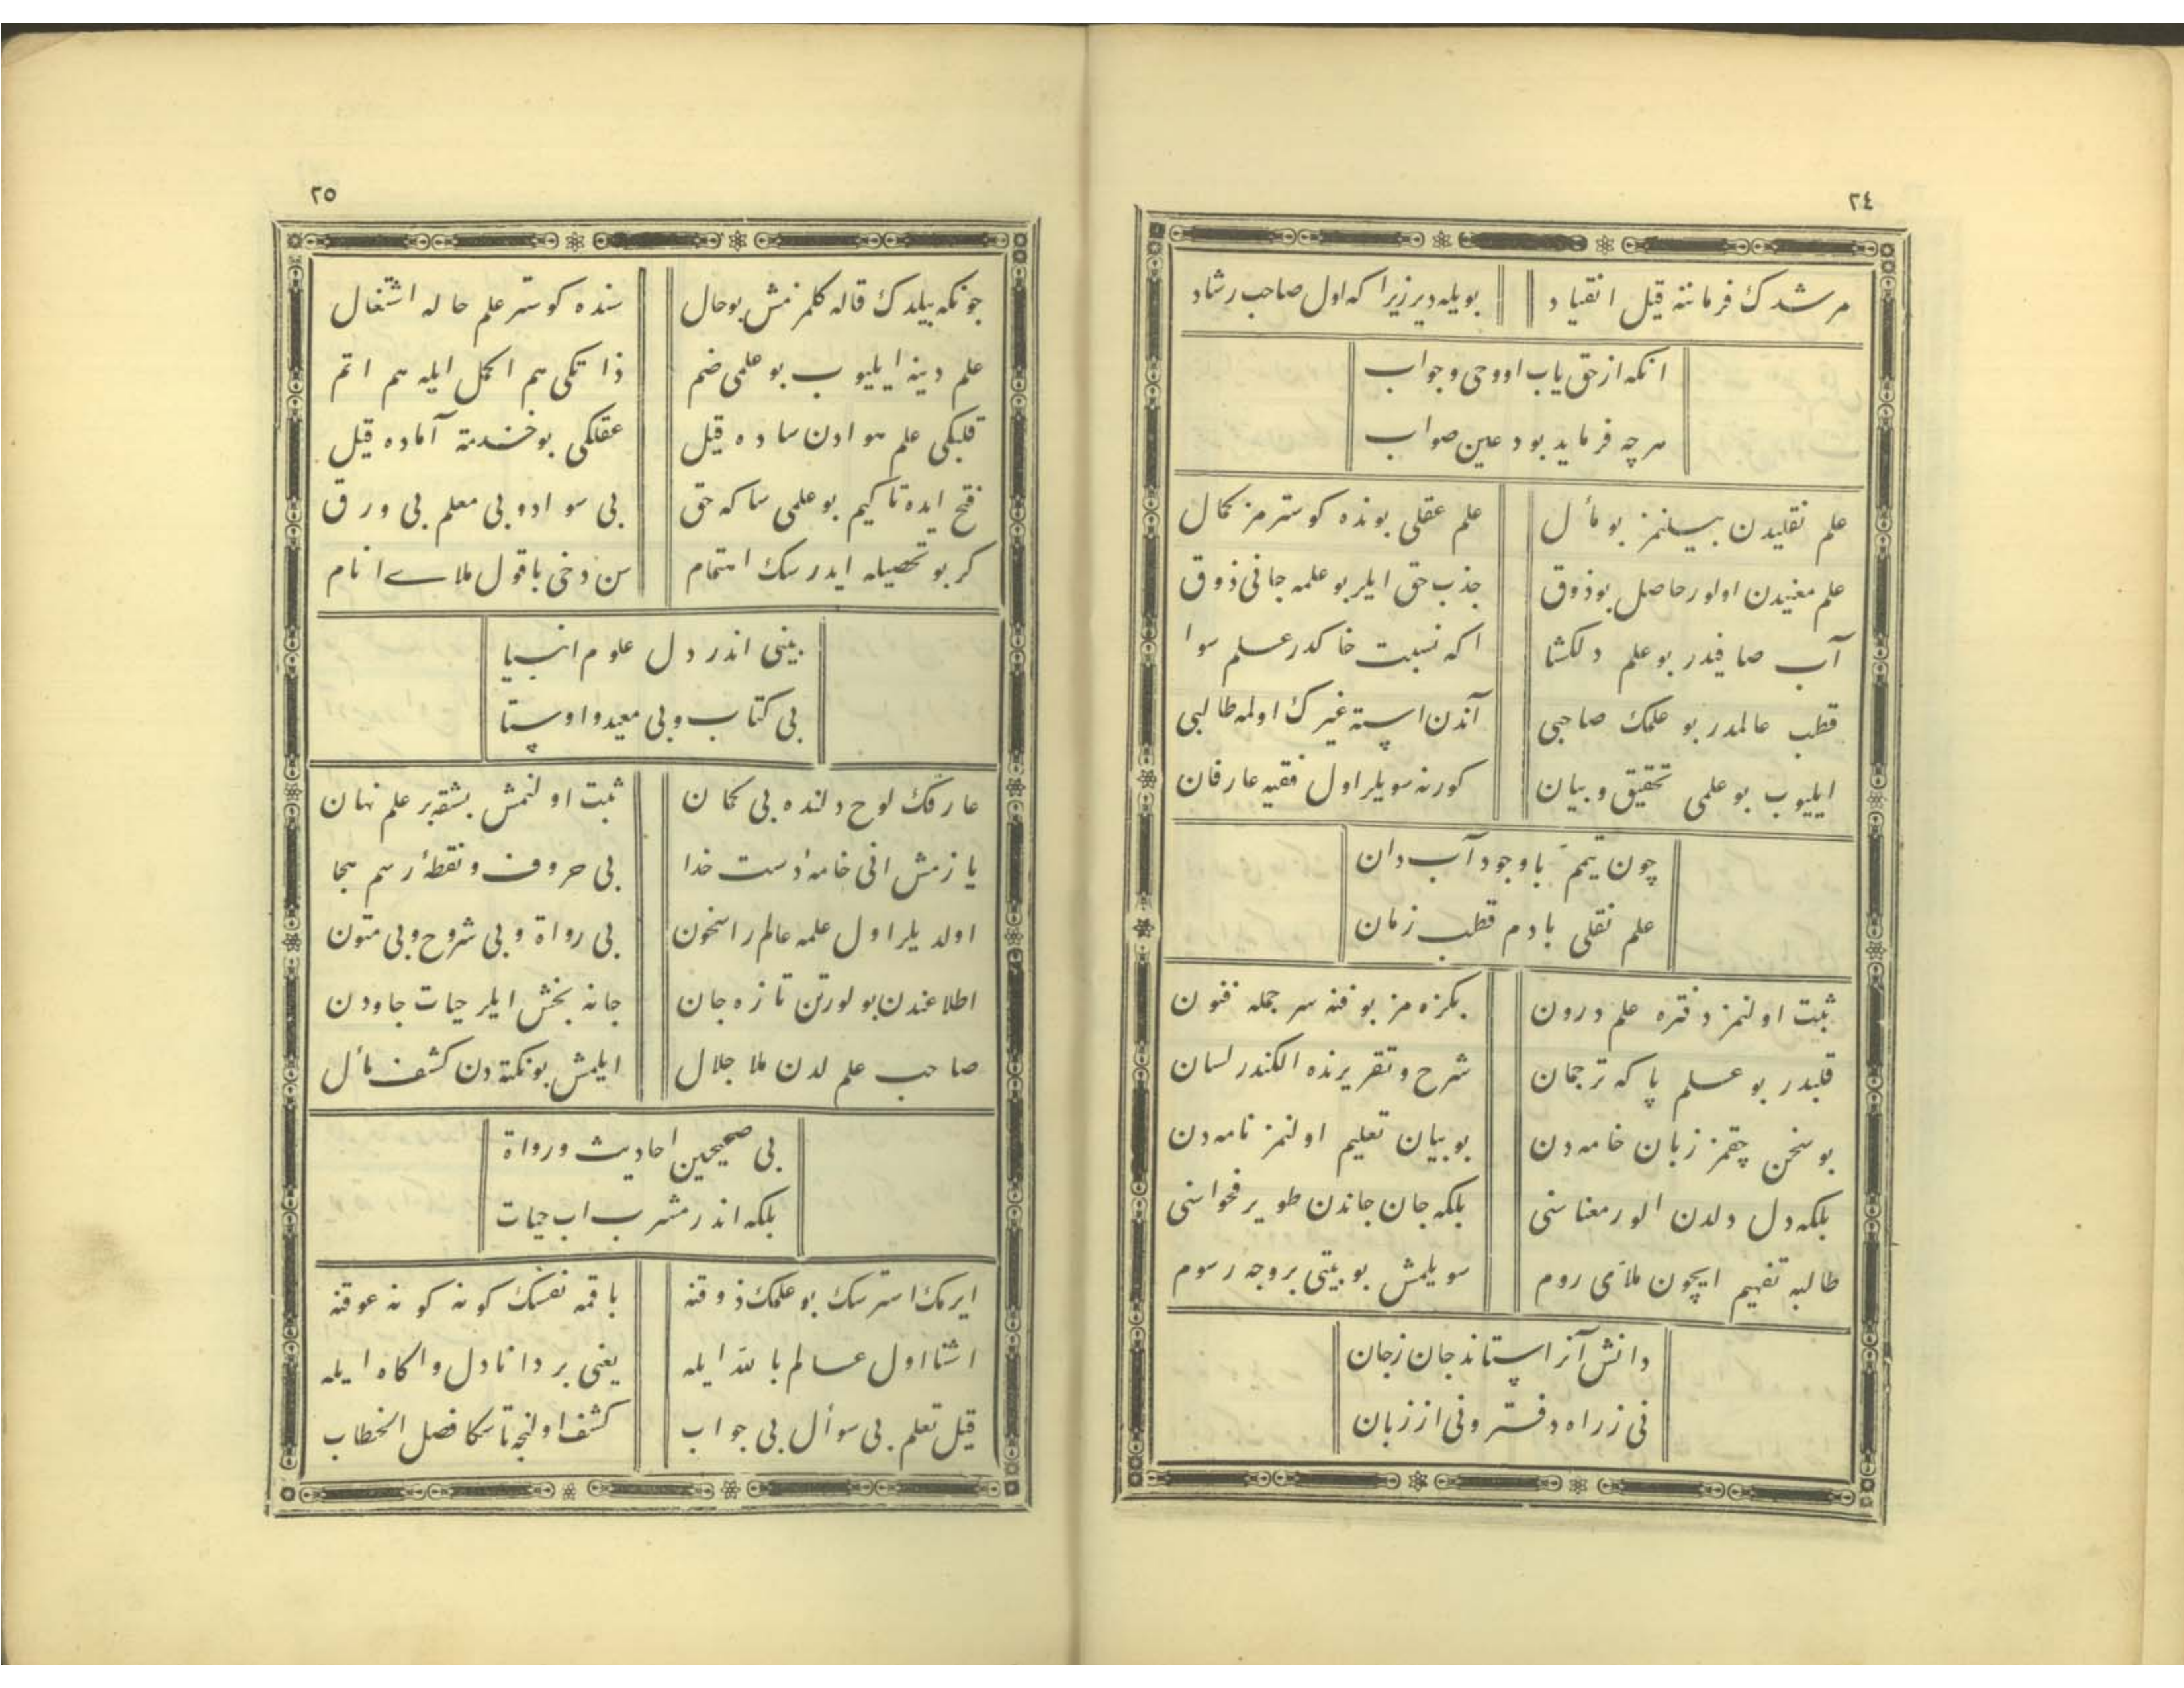 ٢٤
مرشدك فرماننه قيل انقياد بويله دير زيرا كه اول صاحب رشاد
انكه از حق يابد او وحى و جواب
هرچه فرمايد بود عين صواب
علم نقليدن بيلنمز بو مأل علم عقلى بونده كوسترمز كمال
علم معنيدن اولور حاصل بو ذوق جذب حق ايلر بو علمه جانى ذوق
آب صافيدر بو علم دلكشا اكه نسبت خاكدر علم سوا
قطب عالمدر بو علمك صاحبى آندن استه غيرك اولمه طالبى
ايليوب بو علمى تحقيق و بيان كورنه سويلر اول فقيه عارفان
چون تيمم با وجود آب دان
علم نقلى با دم قطب زمان
ثبت اولنمز دفتره علم درون بكزه مز بو فنه سر جمله فنون
قلبدر بو علم پاكه ترجمان شرح و تقريرنده الكندر لسان
بو سخن چقمز زبان خامه دن بو بيان تعليم اولنمز نامه دن
بلكه دل دلدن الور معناسنى بلكه جان جاندن طوير فحواسنى
طالبه تفهيم ايچون ملاى روم سويلمش بو بيتى بر وجه رسوم
دانش آنرا ستاند جان زجان
نى زراه دفتر و نى از زبان
٢٥
چونكه بيلدك قاله كلمزمش بو حال سنده كوستر علم حاله اشتغال
علم دينه ايليوب بو علمى ضم ذاتكى هم اكمل ايله هم اتم
قلبكى علم هوادن ساده قيل عقلكى بو خدمته آماده قيل
فتح ايده تا كيم بو علمى ساكه حق بى سواد و بى معلم بى ورق
كر بو تحصيله ايدرسك اهتمام سن دخى با قول ملاى انام
بينى اندر دل علوم انبيا
بى كتاب و بى معيد و اوستا
عارفك لوح دلنده بى كمان ثبت اولنمش بشقه بر علم نهان
يازمش انى خامۀ دست خدا بى حروف و نقطۀ رسم هجا
اولديلر اول علمه عالم راسخون بى رواة و بى شروح و بى متون
اطلاعندن بولور تن تازه جان جانه بخش ايلر حيات جاودن
صاحب علم لدن ملا جلال ايلمش بو نكته دن كشف مأل
بى صحيحين احاديث و رواة
بلكه اندر مشرب اب حيات
ايرمك استرسك بو علمك ذوقنه باقمه نفسك كونه كونه عوقنه
اشنا اول عالم بالله ايله يعنى بر دانا دل و اكاه ايله
قيل تعلم بى سوأل بى جواب كشف اولنجه تا سكا فصل الخطاب